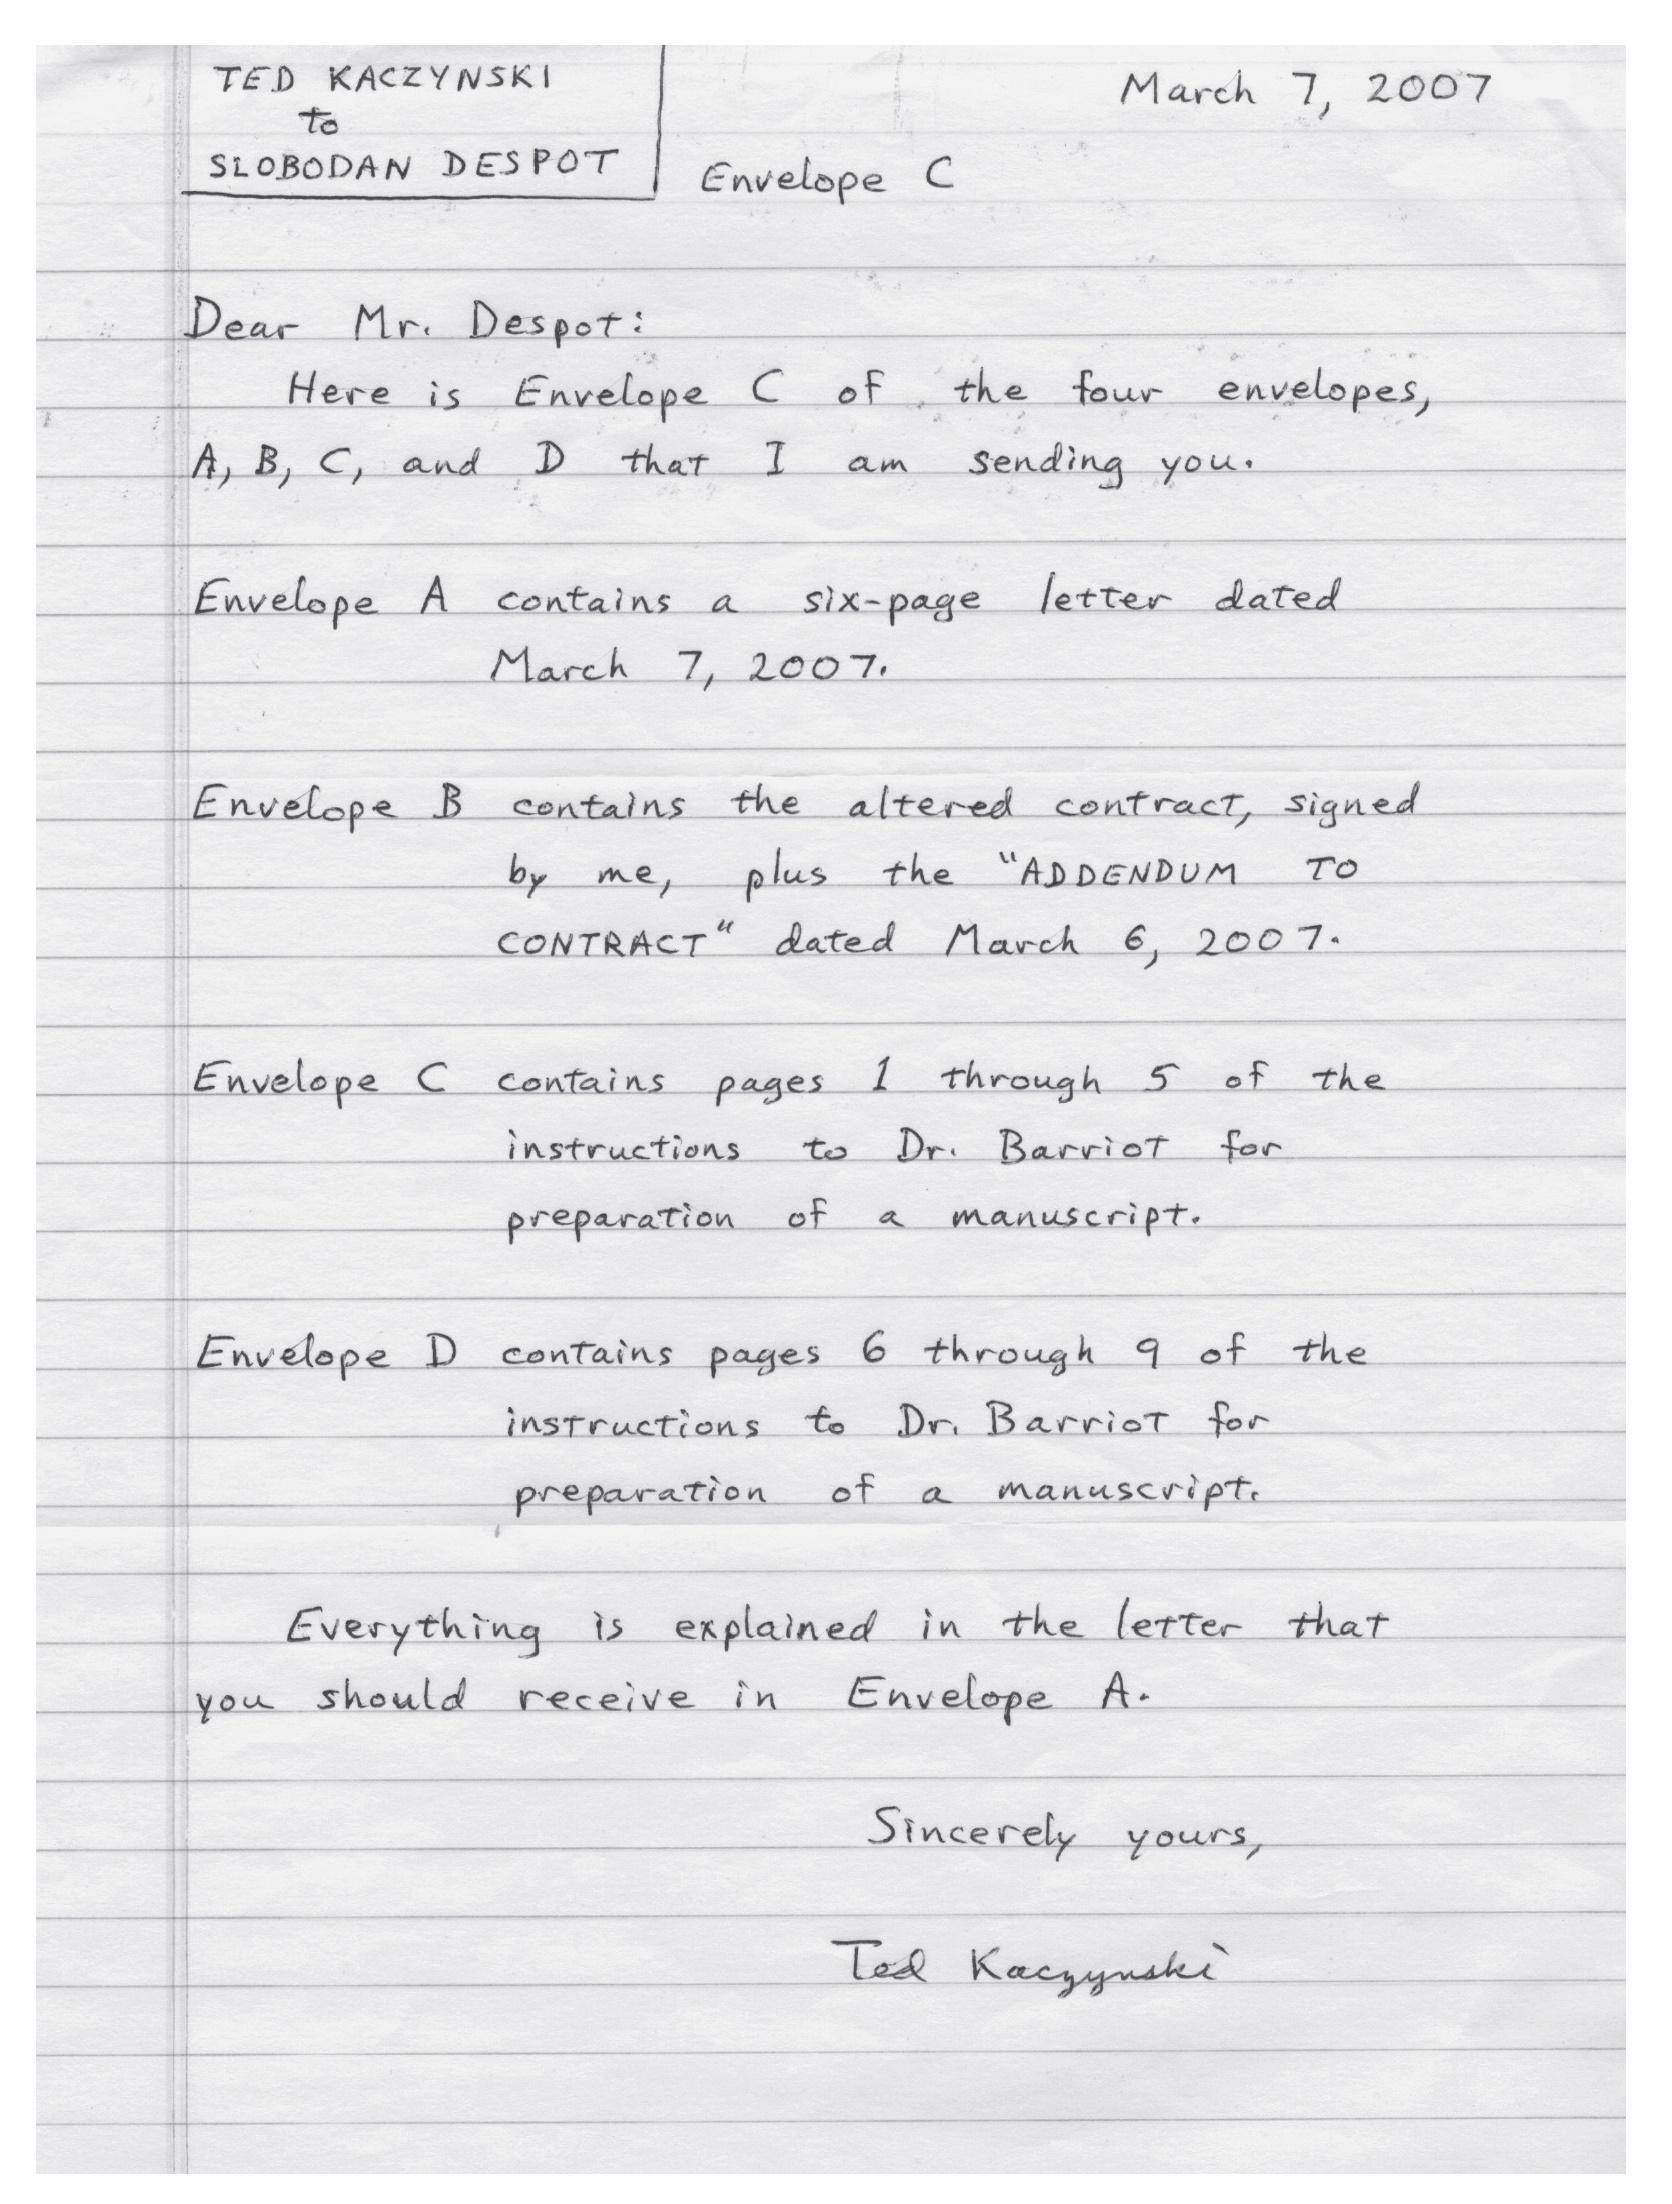 TED KACZYNSKI
to
SLOBODAN DESPOT
March 7, 2007
Envelope C
Dear Mr. Despot:
Here is Envelope C of the four envelopes,
A, B, C, and D that I am sending you.
Envelope A contains a six-page letter dated
March 7, 2007.
Envelope B contains the altered contract, signed
by me, plus the "ADDENDUM TO
CONTRACT" dated March 6, 2007.
Envelope C contains pages 1 through 5 of the
instructions to Dr. Barriot for
preparation of a manuscript.
Envelope D contains pages 6 through 9 of the
instructions to Dr. Barriot for
preparation of a manuscript.
Everything is explained in the letter that
you should receive in Envelope A.
Sincerely yours,
Ted Kaczynski